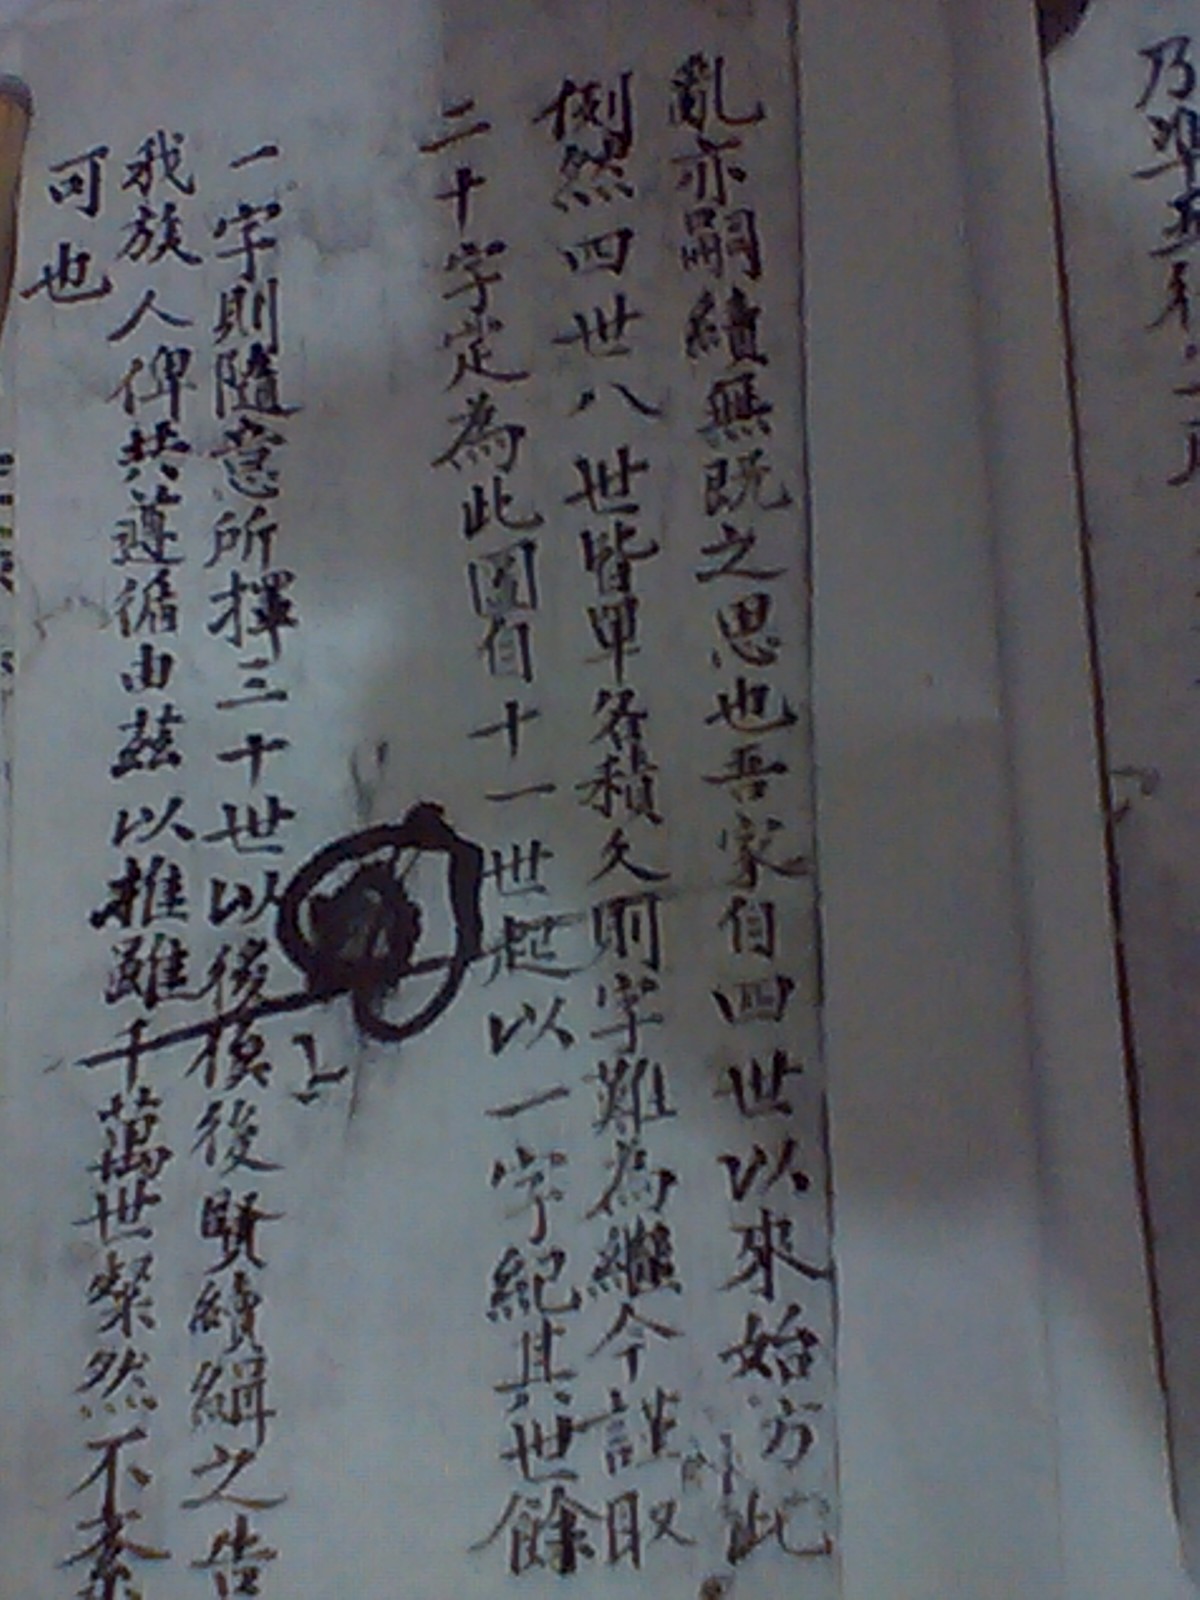 乃準五行
亂亦嗣續無既之思也吾家自四世以來始方此
例然四世八世皆單名積久則字難為繼今謹取
二十字定為此圖自十一世起以一字紀其世餘
一字則隨意所擇三十世以後俟後賢續緝之告
我族人俾共遵循由茲以推雖千萬世粲然不紊
可也